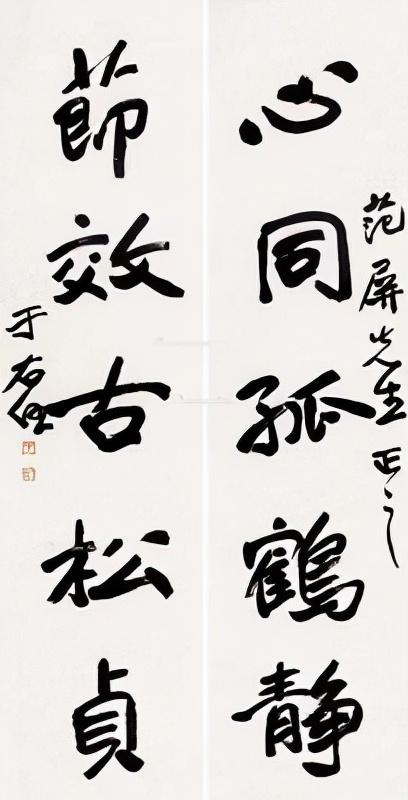 范屏先生正之
心同孤鶴静
節效古松貞
于右任